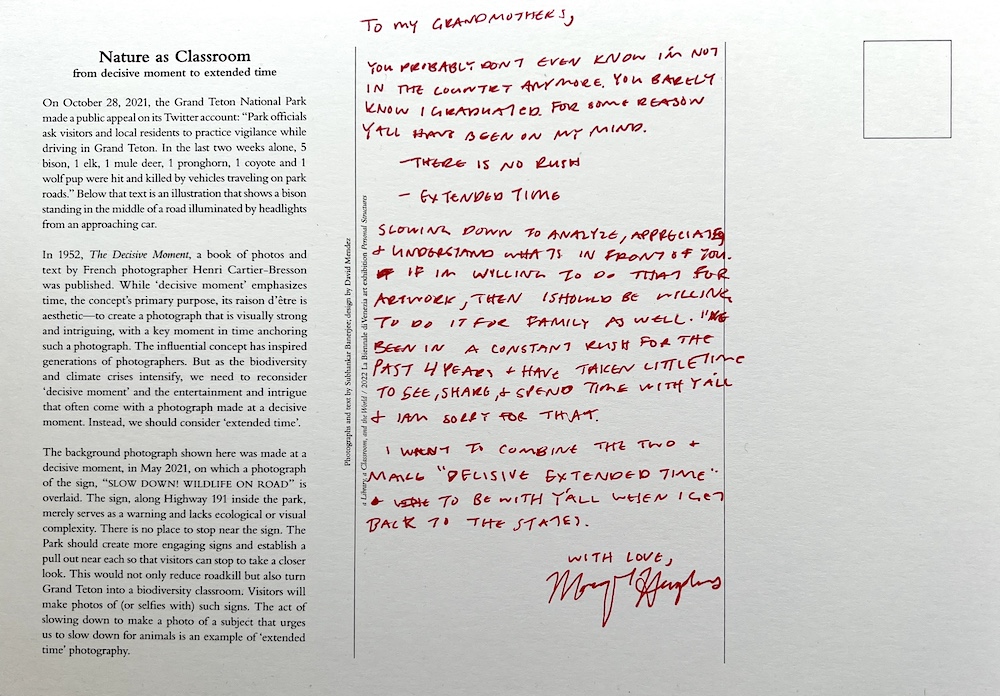 Nature as Classroom
from decisive moment to extended time
On October 28, 2021, the Grand Teton National Park
made a public appeal on its Twitter account: “Park officials
ask visitors and local residents to practice vigilance while
driving in Grand Teton. In the last two weeks alone, 5
bison, 1 elk, 1 mule deer, 1 pronghorn, 1 coyote and 1
wolf pup were hit and killed by vehicles traveling on park
roads.” Below that text is an illustration that shows a bison
standing in the middle of a road illuminated by headlights
from an approaching car.
In 1952, The Decisive Moment, a book of photos and
text by French photographer Henri Cartier-Bresson
was published. While ‘decisive moment’ emphasizes
time, the concept’s primary purpose, its raison d’être is
aesthetic—to create a photograph that is visually strong
and intriguing, with a key moment in time anchoring
such a photograph. The influential concept has inspired
generations of photographers. But as the biodiversity
and climate crises intensify, we need to reconsider
‘decisive moment’ and the entertainment and intrigue
that often come with a photograph made at a decisive
moment. Instead, we should consider ‘extended time’.
The background photograph shown here was made at a
decisive moment, in May 2021, on which a photograph
of the sign, “SLOW DOWN! WILDLIFE ON ROAD” is
overlaid. The sign, along Highway 191 inside the park,
merely serves as a warning and lacks ecological or visual
complexity. There is no place to stop near the sign. The
Park should create more engaging signs and establish a
pull out near each so that visitors can stop to take a closer
look. This would not only reduce roadkill but also turn
Grand Teton into a biodiversity classroom. Visitors will
make photos of (or selfies with) such signs. The act of
slowing down to make a photo of a subject that urges
us to slow down for animals is an example of ‘extended
time’ photography.
Photographs and text by Subhankar Banerjee; design by David Mendez
a Library, a Classroom, and the World / 2022 La Biennale di Venezia art exhibition Personal Structures
TO MY GRANDMOTHERS,
YOU PROBABLY DON'T EVEN KNOW I'M NOT
IN THE COUNTRY ANYMORE. YOU BARELY
KNOW I GRADUATED. FOR SOME REASON
Y'ALL HAVE BEEN ON MY MIND.
- THERE IS NO RUSH
- EXTENDED TIME
SLOWING DOWN TO ANALYZE, APPRECIATE,
+ UNDERSTAND WHATS IN FRONT OF YOU.
IF IM WILLING TO DO THAT FOR
ARTWORK, THEN I SHOULD BE WILLING
TO DO IT FOR FAMILY AS WELL. I'VE
BEEN IN A CONSTANT RUSH FOR THE
PAST 4 YEARS + HAVE TAKEN LITTLE TIME
TO SEE, SHARE, + SPEND TIME WITH Y'ALL
+ I AM SORRY FOR THAT.
I WANT TO COMBINE THE TWO +
MAKE "DECISIVE EXTENDED TIME"
TO BE WITH Y'ALL WHEN I GET
BACK TO THE STATES.
WITH LOVE,